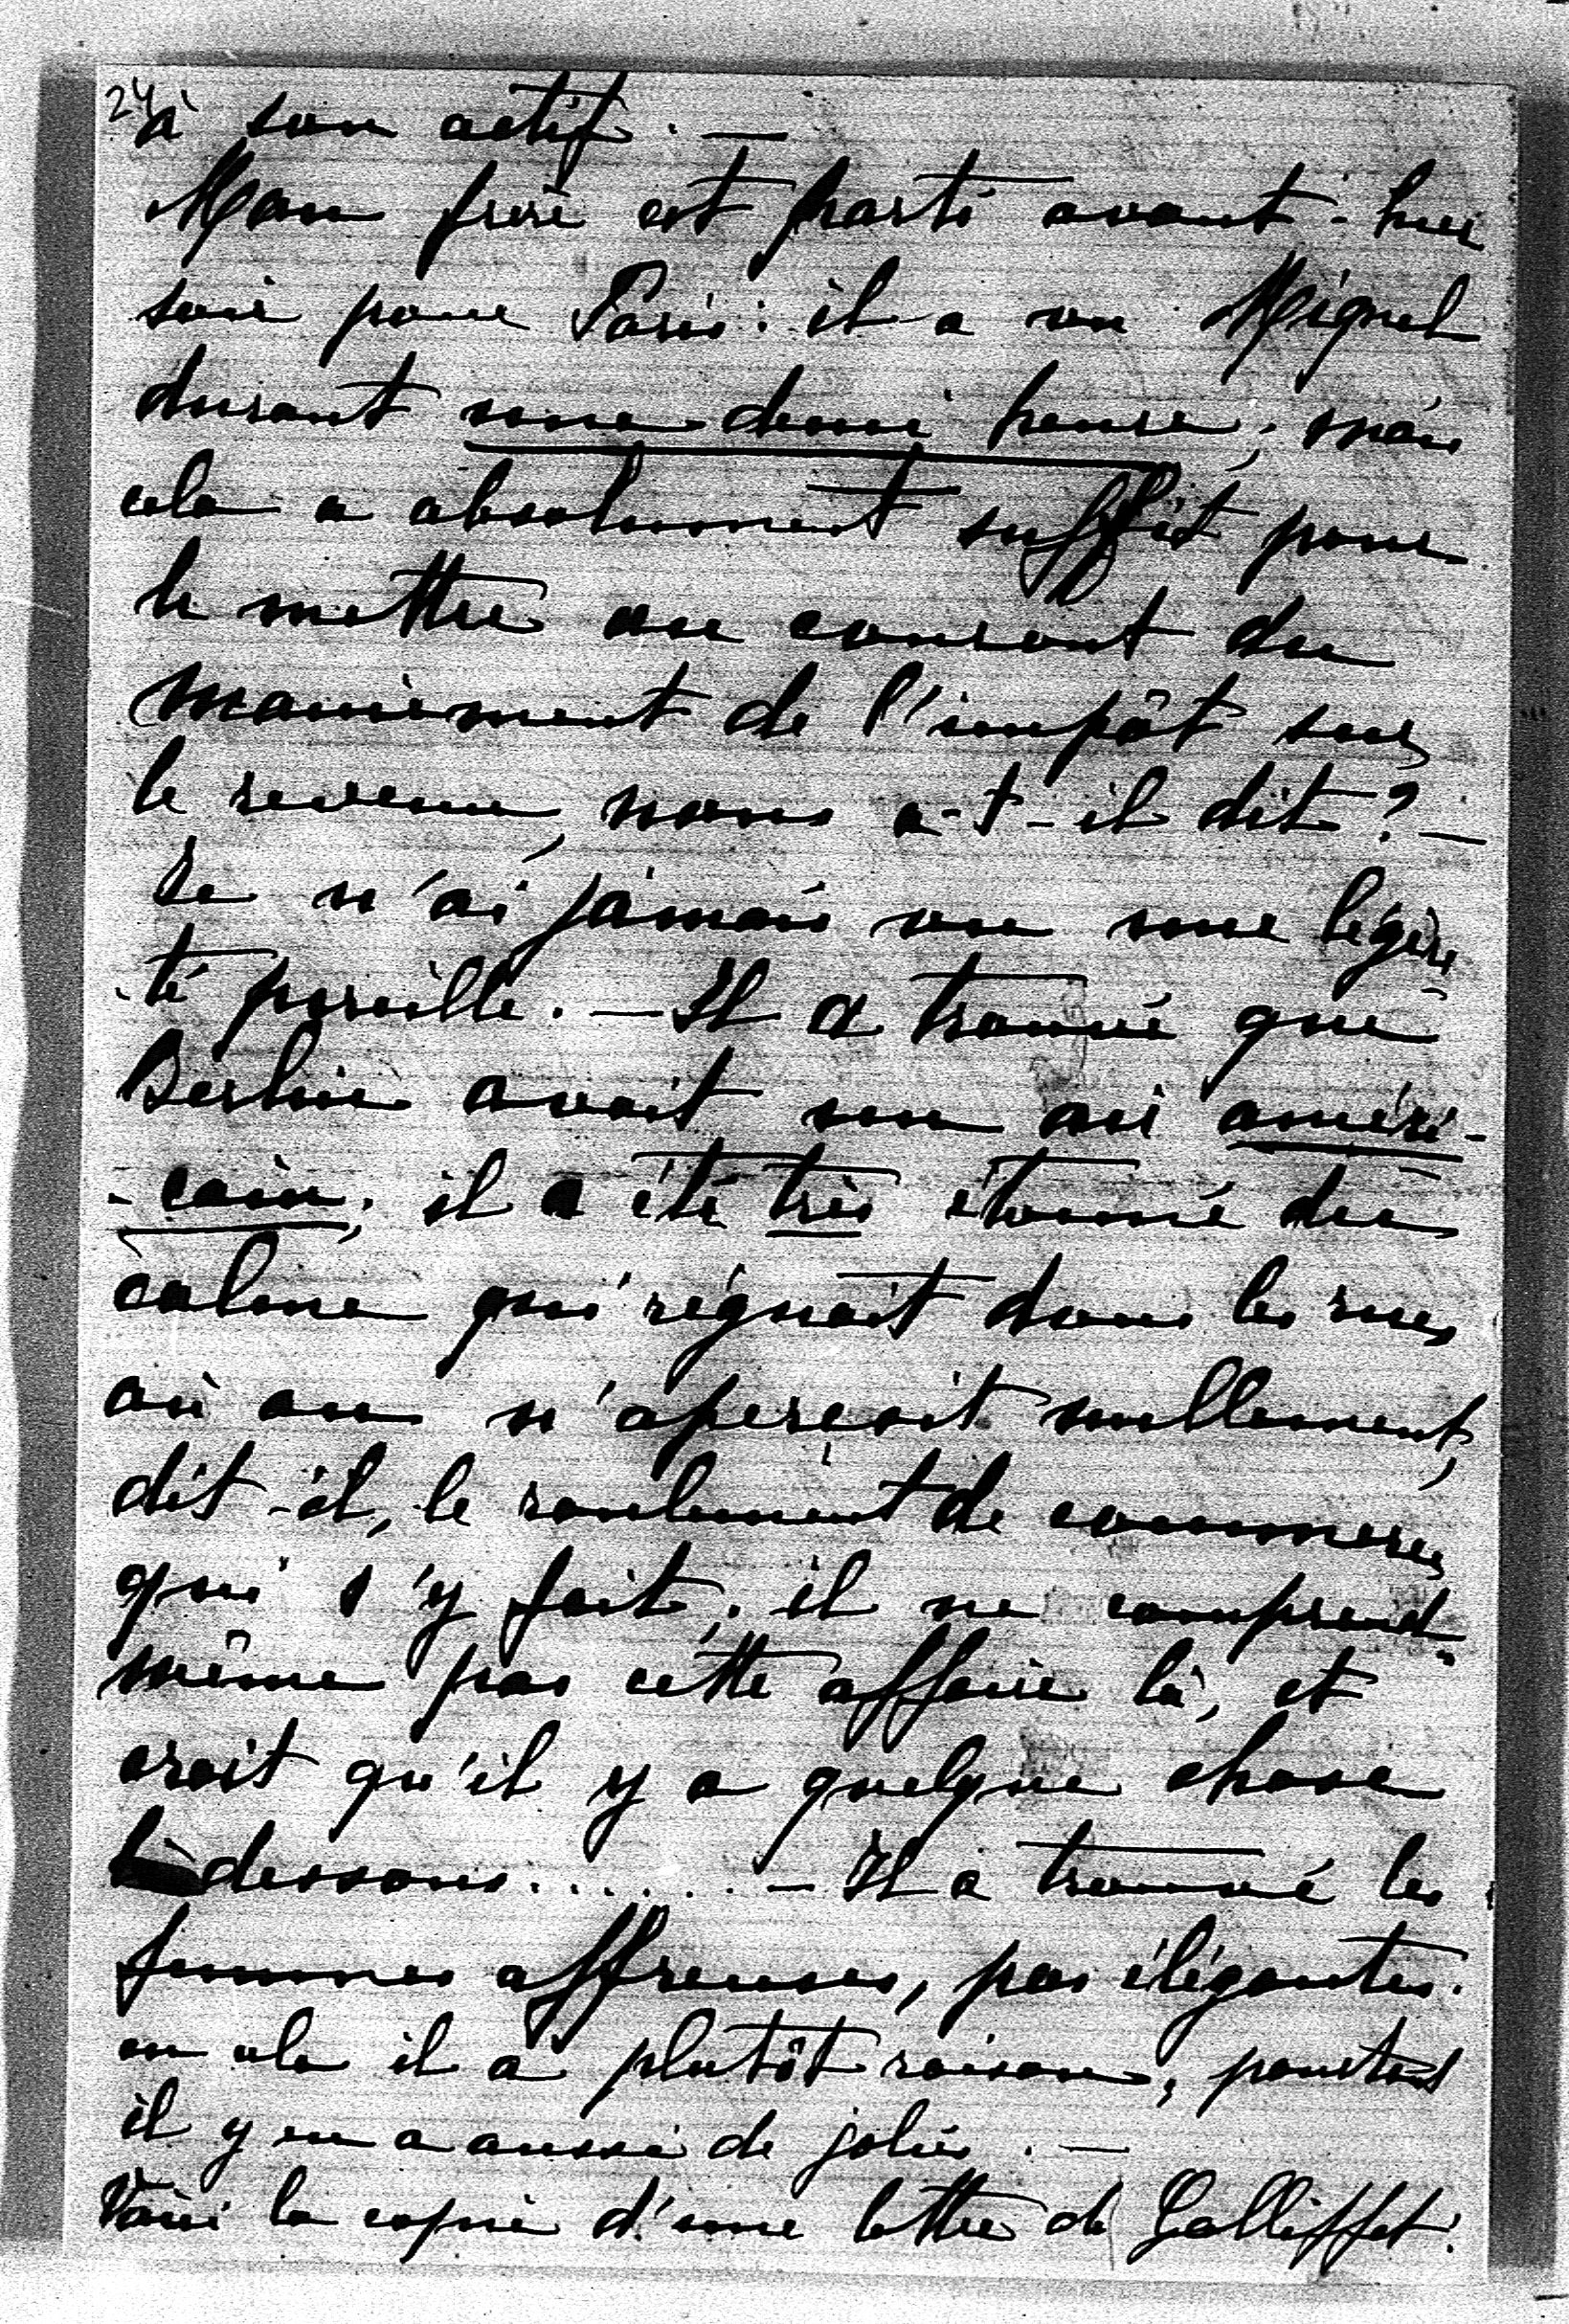 24
à son actif. —
Mon frère est parti avant-hier
soir pour Paris: il a vu Miguel
durant une demi heure; mais
cela a absolument suffit pour
le mettre au courant du
maniement de l'impôt sur
le revenu, nous a-t-il dit? —
Je n'ai jamais vu une légère
-té pareille. — Il a trouvé que
Berlin avait un air améri-
-cain; il a été très étonné du
calme qui régnait dans les rues
où on n'aperçoit nullement,
dit-il, le roulement de commerce
qui s'y fait; il ne comprend
même pas cette affaire là, et
croit qu'il y a quelque chose
là dessous....... — Il a trouvé les
femmes affreuses, pas élégantes.
en cela il a plutôt raison, pourtant
il y en a aussi de jolies. —
Voici la copie d'une lettre de Galliffet: